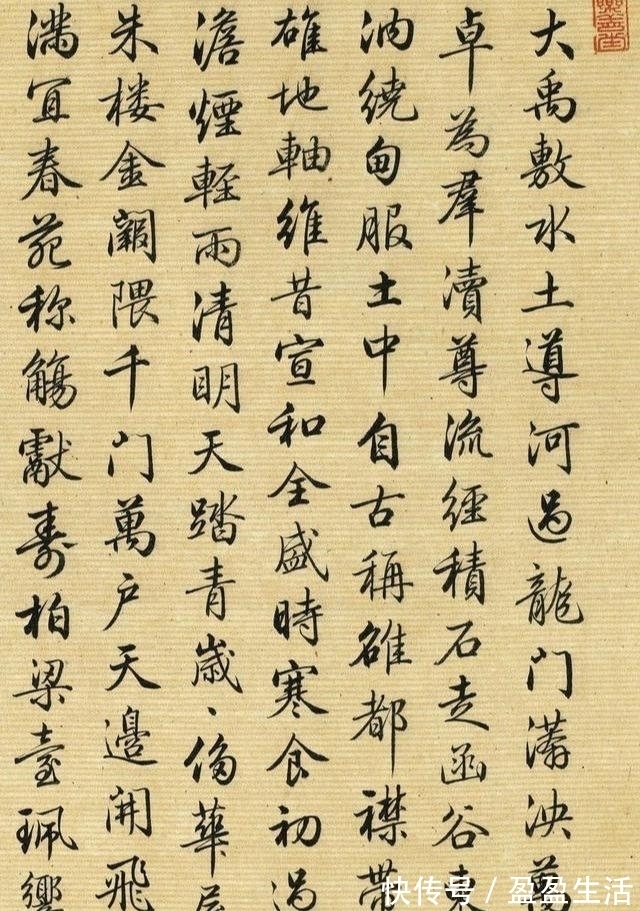 大禹敷水土導河過龍門泱
卓為羣瀆尊流經積石走函谷東
汭繞甸服土中自古稱雄都襟帶
雄地軸維昔宣和全盛時寒食初過
澹煙輕雨清明天踏青歲、侈華
朱楼金闕隈千門萬户天邊開飛
满宜春苑称觴獻壽柏梁臺珮響
快传号 / 盈盈生活